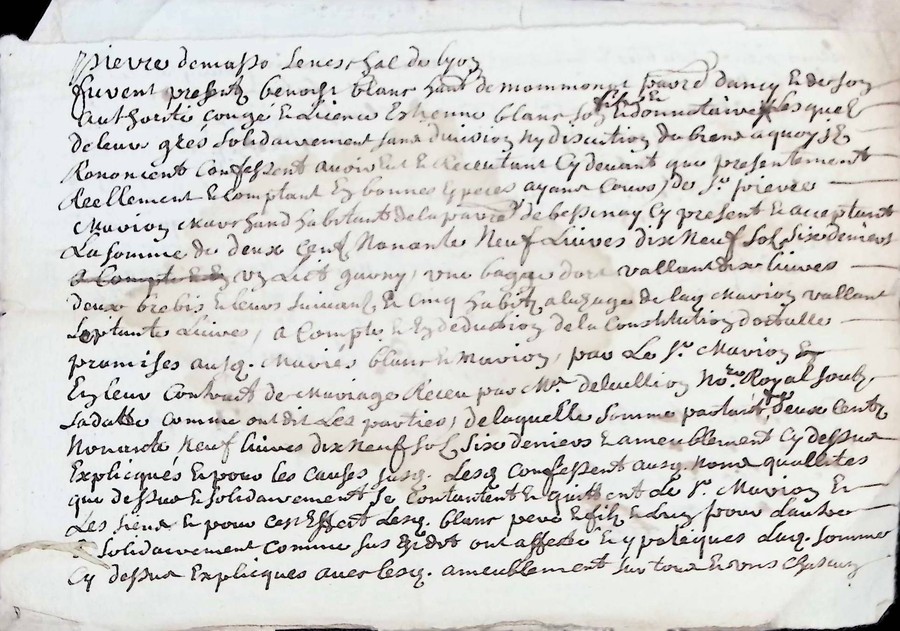 pierre demasso seneschal de lyon
furent presentz benoist blanc hant de mommont parre dancy Et de son
authorité congé Et licence Estienne blanc son filz Et donnataire lesquelz
de leur grés solidairement sans division ny discution de biens a quoy ilz
Renoncent Confessent avoir Et Receu tant Cy devant que presentement
Reellement Et comptant En bonnes Especes ayans Cours, de Sr. pierre
Marion Marchand habitant de la parre de bessenay Cy present Et acceptant
La somme de deux Centz Nonante Neuf Livres dix Neuf Solz Six deniers
a Compte Et En un Lict garny, une bague dore vallant dix livres
deux brebis Et leurs suivans, Et Cinq habitz a lusage de lad Marion vallant
septante Livres, a Compte Et En deduction de la Constitution dotalle
promises ausq. Mariés blanc Et Marion, par Le Sr. Marion En
En leur Contract de Mariage Receu par Me. delullion Nore. Royal soubz
sa datte comme ont dit Les parties, de laquelle somme partant de deux Centz
Nonante Neuf livres dix Neuf Solz Six deniers Et ameublement Cy dessus
Expliqués Et pour les causes susq. Lesq. Confessent ausq. Noms qualites
que dessus Et solidairement Se Contantent Et quittent Le Sr. Marion Et
Les siens Et pour cest Effect Lesq. blanc pere Et filz Et Lun pour Lautre
Et Solidairement comme sus Est dit ont affecté Et ypoteques Lad. somme
Cy dessus Expliques avec lesq. ameublement sur tous Et uns Chascuns